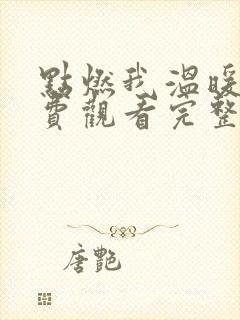 點燃我溫暖
費觀看完整
唐艷